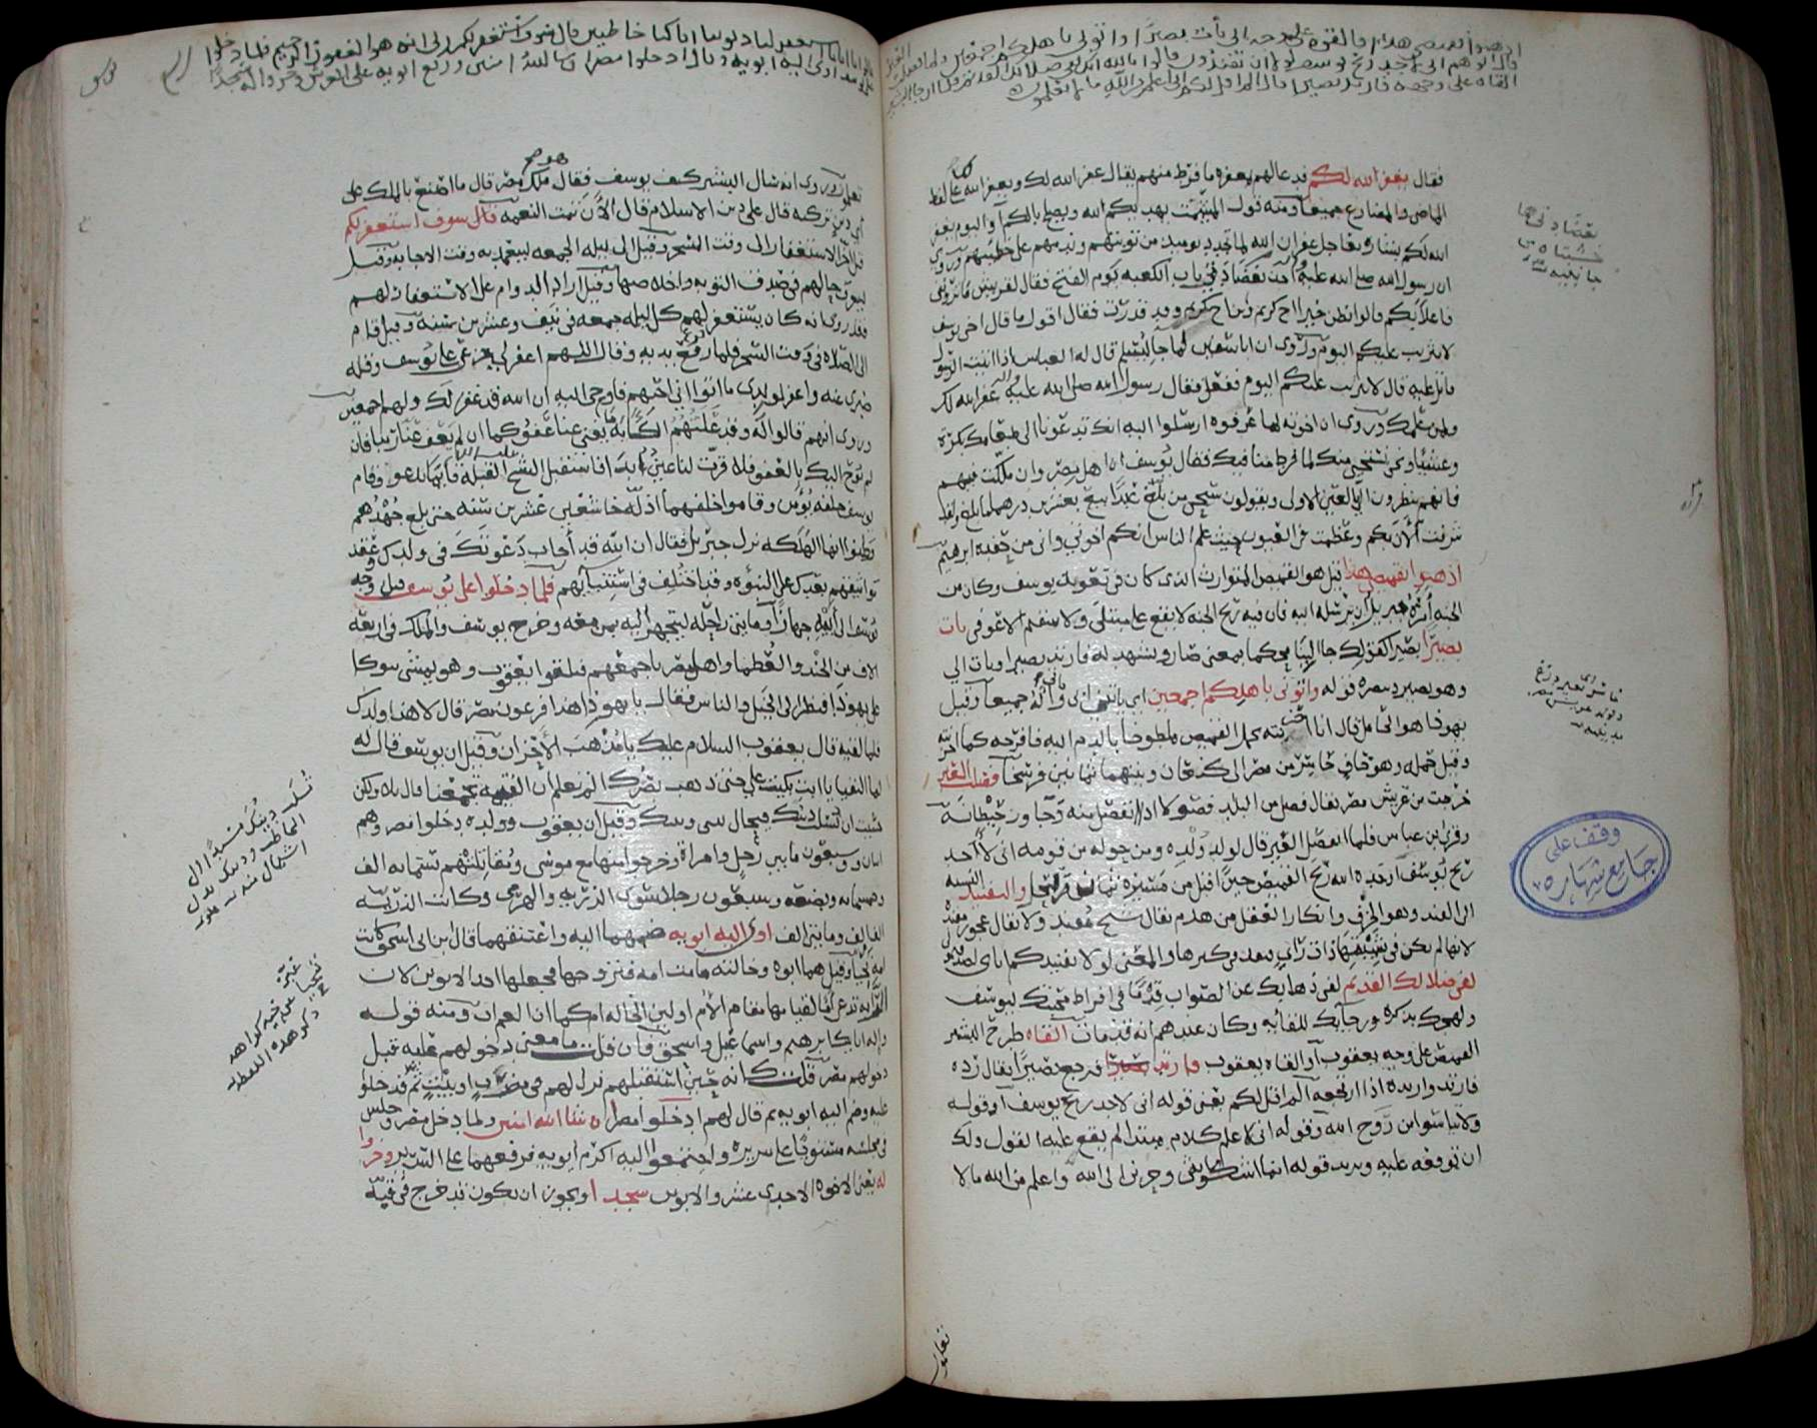 اذهبوا بقميصي هذا فالقوه على وجه ابي يات بصيرا واتوني باهلكم اجمعين ولما فصلت العير
قال ابوهم اني لاجد ريح يوسف لولا ان تفندون قالوا تالله انك لفي ضلالك القديم فلما ان جا البشير
القاه على وجهه فارتد بصيرا قال الم اقل لكم اني اعلم من الله ما لا تعلمون
فقال يغفر الله لكم فدعا لهم بمغفرة ما فرط منهم يقال غفر الله لك ويغفر الله لك على لفظ
الماضي والمضارع جميعا ومنه قول المشمت يهديكم الله ويصلح بالكم او اليوم يغفر
الله لكم بشارة بعاجل غفران الله لما تجدد يوميذ من توبتهم وندمهم على خطيتهم وروي
ان رسول الله صلى الله عليه واله اخذ بعضادتي باب الكعبه يوم الفتح فقال لقريش ما تروني
فاعلا بكم قالوا نظن خيرا اخ كريم وابن اخ كريم وقد قدرت فقال اقول ما قال اخي يوسف
لا تثريب عليكم اليوم وروي ان ابا سفين لما جا ليسلم قال له العباس اذا اتيت الرسول
فاتل عليه قال لا تثريب عليكم اليوم ففعل فقال رسول الله صلى الله عليه واله غفر الله لك
ولمن علمك وروي ان اخوته لما عرفوه ارسلوا اليه انك تدعونا الى طعامك بكرة
وعشيا ونحن نستحيي منك لما فرط منا فيك فقال يوسف ان اهل مصر وان ملكت فيهم
فانهم ينظرون الي بالعين الاولى ويقولون سبحن من بلغ عبدا بيع بعشرين درهما ما بلغ ولقد
شرفت الان بكم وعظمت في العيون حيث علم الناس انكم اخوتي واني من حفدة ابرهيم
اذهبوا بقميصي هذا قيل هو القميص المتوارث الذي كان في تعويذ يوسف وكان من
الجنه امره جبريل ان يرسله اليه فان فيه ريح الجنه لا يقع على مبتلى ولا سقيم الا عوفي يات
بصيرا يصير كقولك جا البنا محكما بمعنى صار ويشهد له فارتد بصيرا او يات الي
وهو بصير وينصره قوله واتوني باهلكم اجمعين اي ياتيني ابي وياتي اله جميعا وقيل
يهوذا هو الحامل قال انا احزنته بحمل القميص ملطوخا بالدم اليه فافرحه كما احزنته
وقيل حمله وهو حاف حاسر من مصر الى كنعان وبينهما ثمانين فرسخا فصلت العير
خرجت من عريش مصر يقال فصل من البلد فصولا اذا انفصل منه وجاوز حيطانه
وقرا ابن عباس فلما انفصل العير قال لولد ولده ومن حوله من قومه اني لاجد
ريح يوسف اوجده الله ريح القميص حين اقبل من مسيرة ثمان والتفنيد النسبه
الى الفند وهو الخرف وانكار العقل من هرم يقال شيخ مفند ولا يقال عجوز مفنده
لانها لم تكن في شبيبتها ذات راي فتفند في كبرها والمعنى لولا تفنيدكم اياي لصدقتموني
لفي ضلالك القديم لفي ذهابك عن الصواب قدما في افراط محبتك ليوسف
ولهجك بذكره ورجايك للقايه وكان عندهم انه قد مات القاه طرح البشير
القميص على وجه يعقوب او القاه يعقوب فارتد بصيرا فرجع بصيرا يقال رده
فارتد وارتده اذا ارتجعه الم اقل لكم يعني قوله اني لاجد ريح يوسف او قوله
ولا تياسوا من روح الله وقوله اني اعلم كلام مبتدا لم يقع عليه القول ولك
ان توقعه عليه وتريد قوله انما اشكو بثي وحزني الى الله واعلم من الله ما لا
تعلمون
وقف على
جامع شهاره
قالوا يا ابانا استغفر لنا ذنوبنا انا كنا خاطيين قال سوف استغفر لكم ربي انه هو الغفور الرحيم فلما دخلوا
على يوسف اوى اليه ابويه وقال ادخلوا مصر ان شا الله امنين ورفع ابويه على العرش وخروا له سجدا
تعلمون وروي انه سال البشير كيف يوسف فقال هو ملك مصر قال ما اصنع بالملك على
اي دين تركته قال على دين الاسلام قال الان تمت النعمه قال سوف استغفر لكم
قيل اخر الاستغفار الى وقت السحر وقيل الى ليله الجمعه ليتعمد به وقت الاجابه وقيل
ليتعرف حالهم في صدق التوبه واخلاصها وقيل اراد الدوام على الاستغفار لهم
فقد روي انه كان يستغفر لهم كل ليله جمعه في نيف وعشرين سنه وقيل قام
الى الصلاه في وقت السحر فلما فرغ رفع يديه وقال اللهم اغفر لي جزعي على يوسف وقله
صبري عنه واغفر لولدي ما اتوا الى اخيهم فاوحي اليه ان الله قد غفر لك ولهم اجمعين
وروي انهم قالوا له وقد علتهم الكابه ما يغني عنا عفوكما ان لم يعف عنا ربنا فان
لم يوح اليك بالعفو فلا قرت لنا عين ابدا فاستقبل الشيخ القبله قايما يدعو وقام
يوسف خلفه يؤمن وقاموا خلفهما اذله خاشعين عشرين سنه حتى بلغ جهدهم
وظنوا انها الهلكه نزل جبريل فقال ان الله قد اجاب دعوتك في ولدك وعقد
مواثيقهم بعدك على النبوه وقد اختلف في استنبايهم فلما دخلوا على يوسف قيل وجه
يوسف الى ابيه جهازا وماتي راحله ليتجهز اليه بمن معه وخرج يوسف والملك في اربعه
الاف من الجند والعظما واهل مصر باجمعهم فتلقوا يعقوب وهو يمشي يتوكا
على يهوذا فنظر الى الخيل والناس فقال يا يهوذا هذا فرعون مصر قال لا هذا ولدك
فلما لقيه قال يعقوب السلام عليك يا مذهب الاحزان وقيل ان يوسف قال له
لما التقيا يا ابت بكيت علي حتى ذهب بصرك الم تعلم ان القيمه تجمعنا قال بلى ولكن
خشيت ان تسلب دينك فيحال بيني وبينك وقيل ان يعقوب وولده دخلوا مصر وهم
اثنان وسبعون ما بين رجل وامراة وخرجوا منها مع موسى ومقاتلتهم ستمايه الف
وخمسمايه وبضعه وسبعون رجلا سوى الذريه والهرمى وكانت الذريه
الف الف وماتي الف اوى اليه ابويه ضمهما اليه واعتنقهما قال ابن ابي اسحق كانت
امه تحيا وقيل هما ابوه وخالته ماتت امه فتزوجها فجعلها احد الابوين لان
الرابه تدعى اما لقيامها مقام الام او لان الخاله ام كما ان العم اب ومنه قوله
واله ابايك ابرهيم واسماعيل واسحق فان قلت ما معنى دخولهم عليه قبل
دخولهم مصر قلت كانه حين استقبلهم نزل لهم في مضرب او بيت ثم فدخلوا
عليه وضم اليه ابويه ثم قال لهم ادخلوا مصر ان شا الله امنين ولما دخل مصر وجلس
في مجلسه مستويا على سريره واجتمعوا اليه اكرم ابويه فرفعهما على السرير وخروا
له يعني الاخوه الاحدى عشر والابوين سجدا ويجوز ان يكون قد خرج في قبه